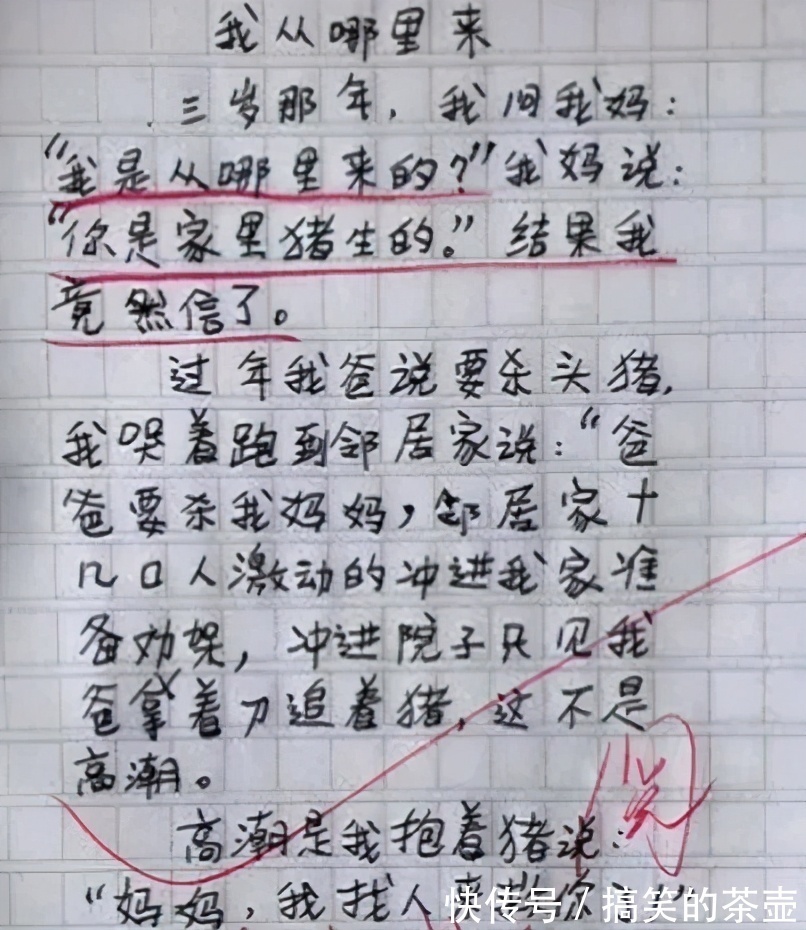 我从哪里来
三岁那年，我问我妈：
“我是从哪里来的？”我妈说：
“你是家里猪生的。”结果我
竟然信了。
过年我爸说要杀头猪，
我哭着跑到邻居家说：“爸
爸要杀我妈妈，邻居家十
几口人激动的冲进我家准
备劝架，冲进院子只见我
爸拿着刀追着猪，这不是
高潮。
阅
高潮是我抱着猪说：
“妈妈，我找人来
快传号/搞笑的茶壶